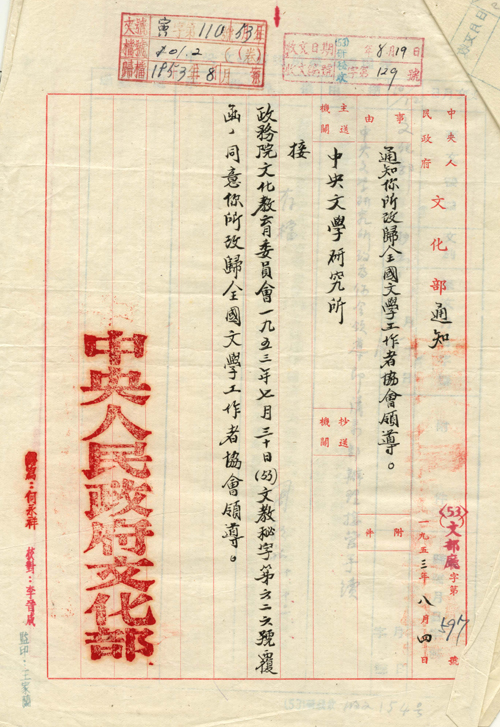 文號 寅字第110号53年
檔號 201.2
歸檔 1953年8月
收文日期 年8月19日
收文區號 字第129號
中央人民政府 文化部通知
(53)文部厰字第597號
一九五三年八月四日
事由 通知你所改歸全國文學工作者協會領導。
附件
主送機關 中央文學研究所
抄送機關
接
政務院文化教育委員會一九五三年七月三十日(53)文教秘字第六二六號覆
函，同意你所改歸全國文學工作者協會領導。
中央人民政府文化部
繕寫：何永祥
校對：李晉咸
監印：王家